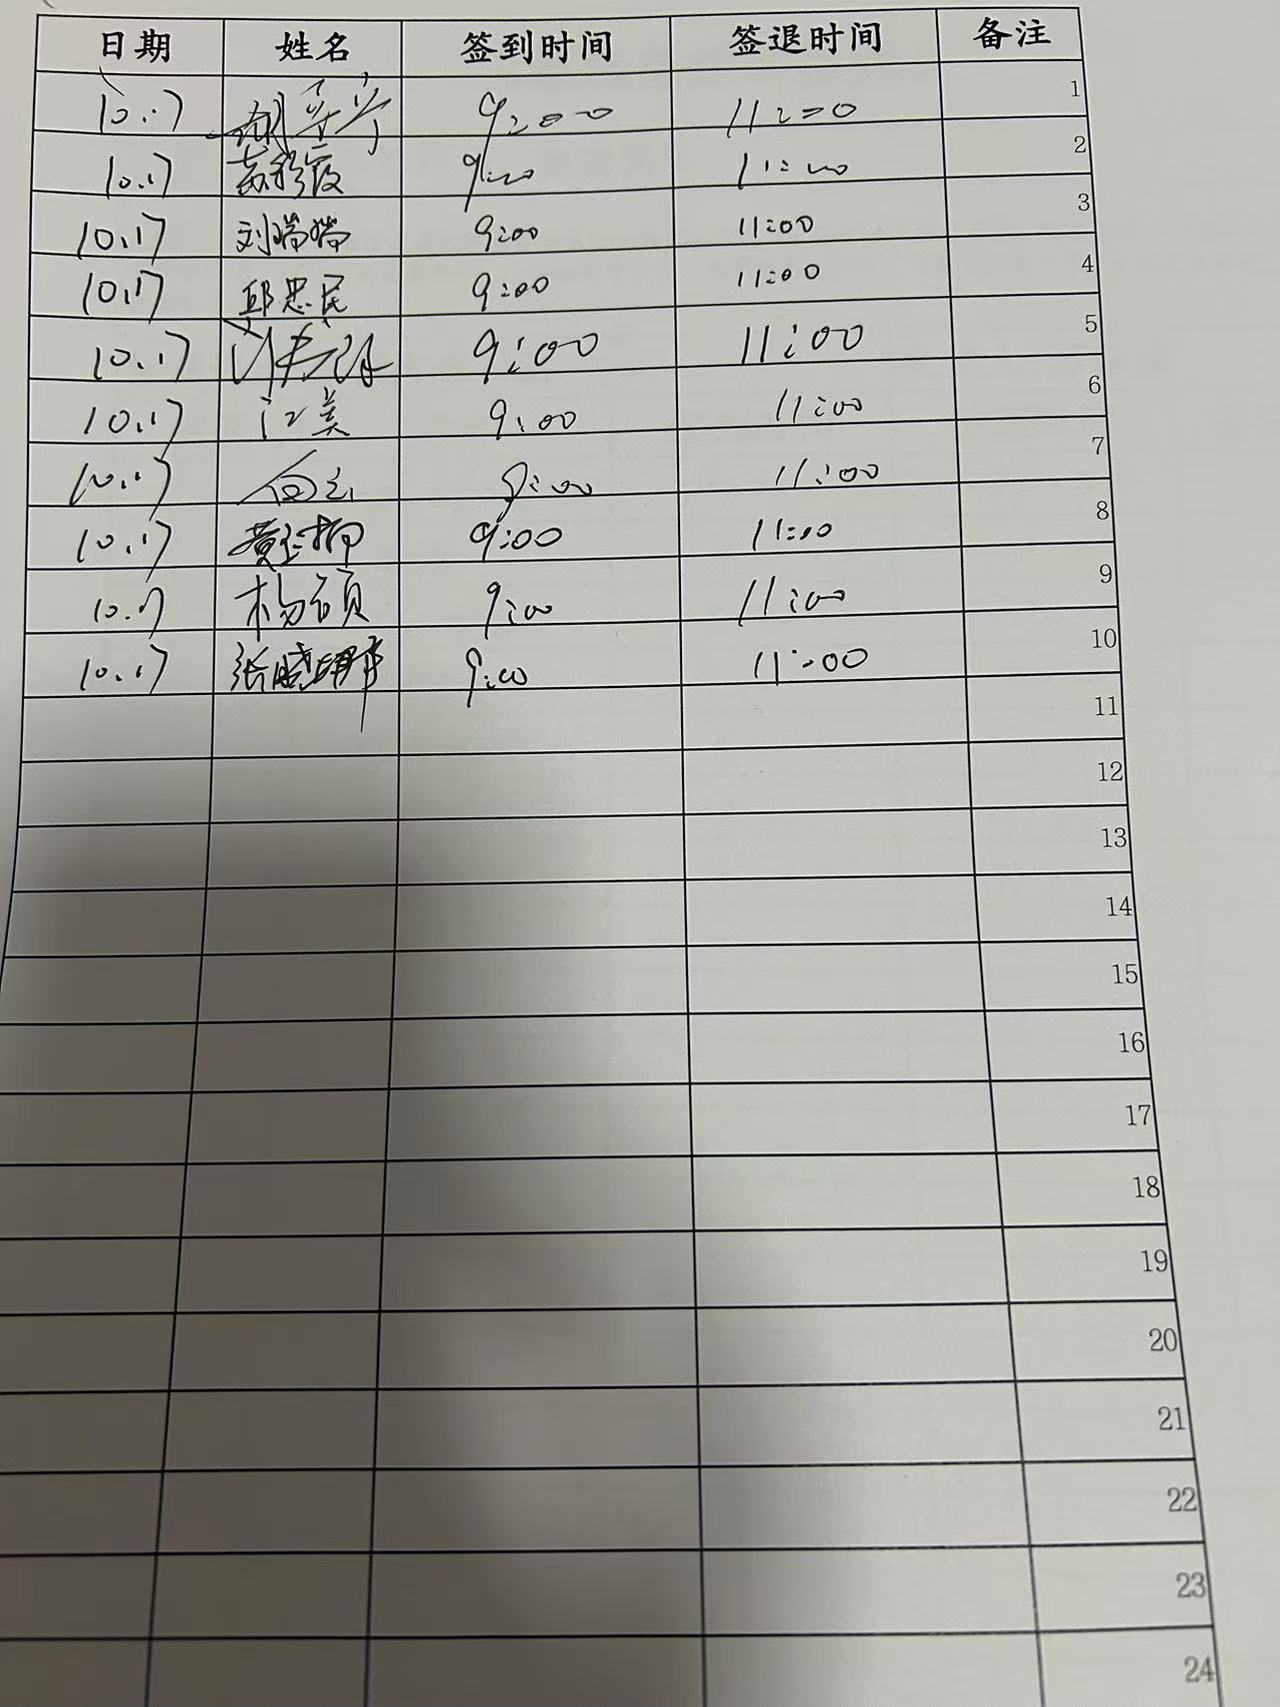 日期 姓名 签到时间 签退时间 备注
10.17 9:00 11:00 1
10.17 9:00 11:00 2
10.17 刘端端 9:00 11:00 3
10.17 邱忠民 9:00 11:00 4
10.17 9:00 11:00 5
10.17 江美 9:00 11:00 6
10.17 白云 9:00 11:00 7
10.17 黄 柳 9:00 11:00 8
10.17 杨硕 9:00 11:00 9
10.17 张晓 9:00 11:00 10
11
12
13
14
15
16
17
18
19
20
21
22
23
24